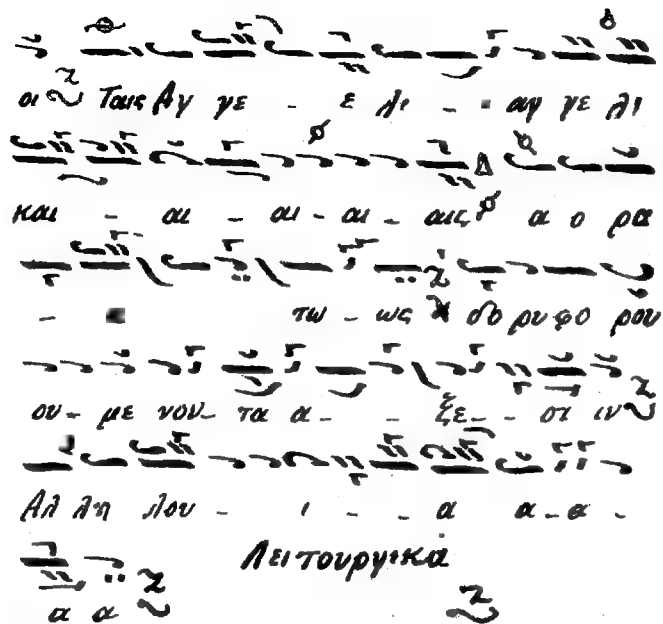 οι Ταις Αγ γε - ε λι - - αγ γε λι
και - αι - αι - αι - αις α ο ρα
- τω - ως δο ρυ φο ρου
ου - με νον - τα α - - ξε - - σι ιν
Αλ λη λου - ι - - α α - α -
α α Λειτουργικά